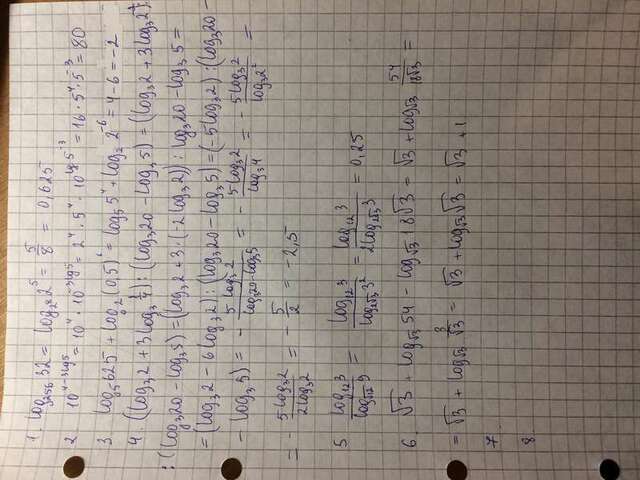 1. log₂₅₆32 = log₂⁸2⁵ = 5/8 = 0,625
2 10⁴⁻³ˡᵍ⁵ = 10⁴ · 10⁻³ˡᵍ⁵ = 2⁴ · 5⁴ · 10^lg5⁻³ = 16 · 5⁴ · 5⁻³ = 80
3 log₅625 + log₂(0,5)⁶ = log₅5⁴ + log₂2⁻⁶ = 4 - 6 = -2
4. (log₃2 + 3log₃ 1/4) : (log₃20 - log₃5) = (log₃2 + 3log₃2⁻²) :
: (log₃20 - log₃5) = (log₃2 + 3 · (-2log₃2)) : log₃20 - log₃5 =
= (log₃2 - 6log₃2) : (log₃20 - log₃5) = (-5log₃2) : (log₃20 -
- log₃5) = - 5log₃2/log₃20-log₃5 = - 5log₃2/log₃4 = - 5log₃2/log₃2² =
= - 5log₃2/2log₃2 = - 5/2 = -2,5
5 log₁₂3/log√₁₂9 = log₁₂3/log₂√₃3² = log₁₂3/2log₂√₃3 = 0,25
6. √3 + log√₃54 - log√₃18√3 = √3 + log√₃ 54/18√3 =
= √3 + log√₃ 3/√3 = √3 + log√₃√3 = √3 + 1
7
8.